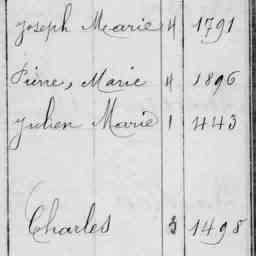 Joseph Marie 4 1791
Pierre, Marie 4 1896
Julien Marie 1 443
Charles 3 1498